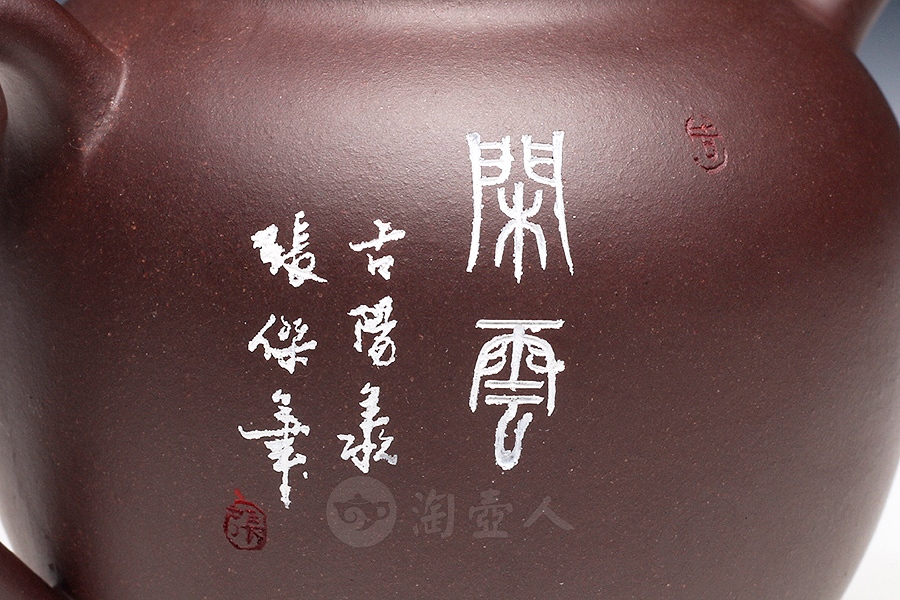 閑雲
古陽羨
張傑筆
張
淘壺人